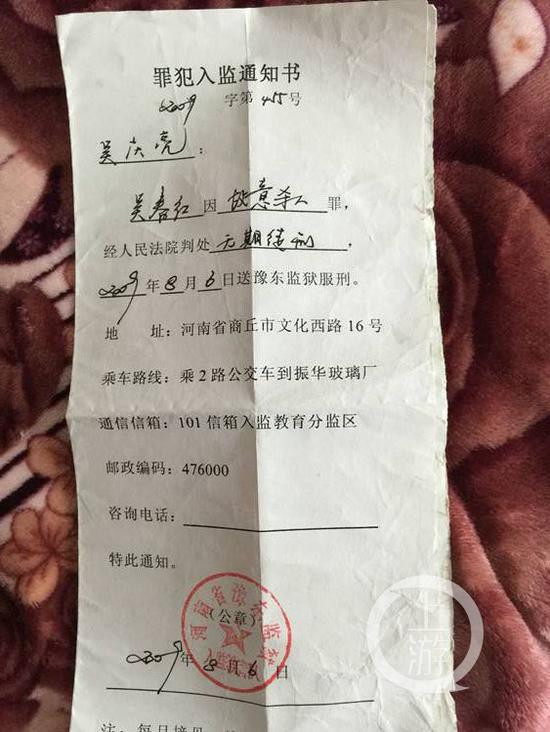 罪犯入监通知书
2009 字第 415 号
吴庆亮:
吴春红因故意杀人罪,
经人民法院判处无期徒刑,
2009年8月6日送豫东监狱服刑。
地 址:河南省商丘市文化西路16号
乘车路线:乘2路公交车到振华玻璃厂
通信信箱:101信箱入监教育分监区
邮政编码:476000
咨询电话:
特此通知。
河南省豫东监狱
(公章)
2009年8月6日
注:每月接见
上游